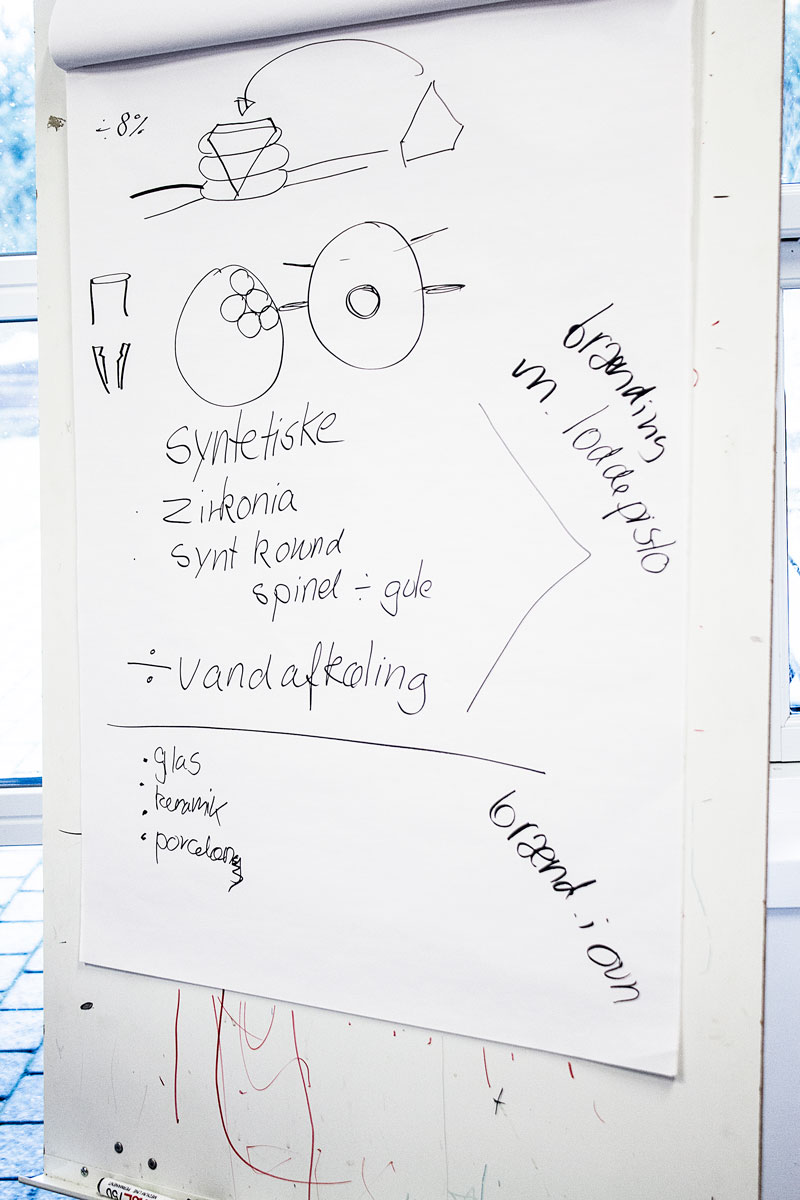 ÷ 8%
syntetiske
zirkonia
synt kound
spinel ÷ gule
÷ vandafkøling
brænding
m. loddepisto
• glas
• keramik
• porcelæn
brænd i ovn